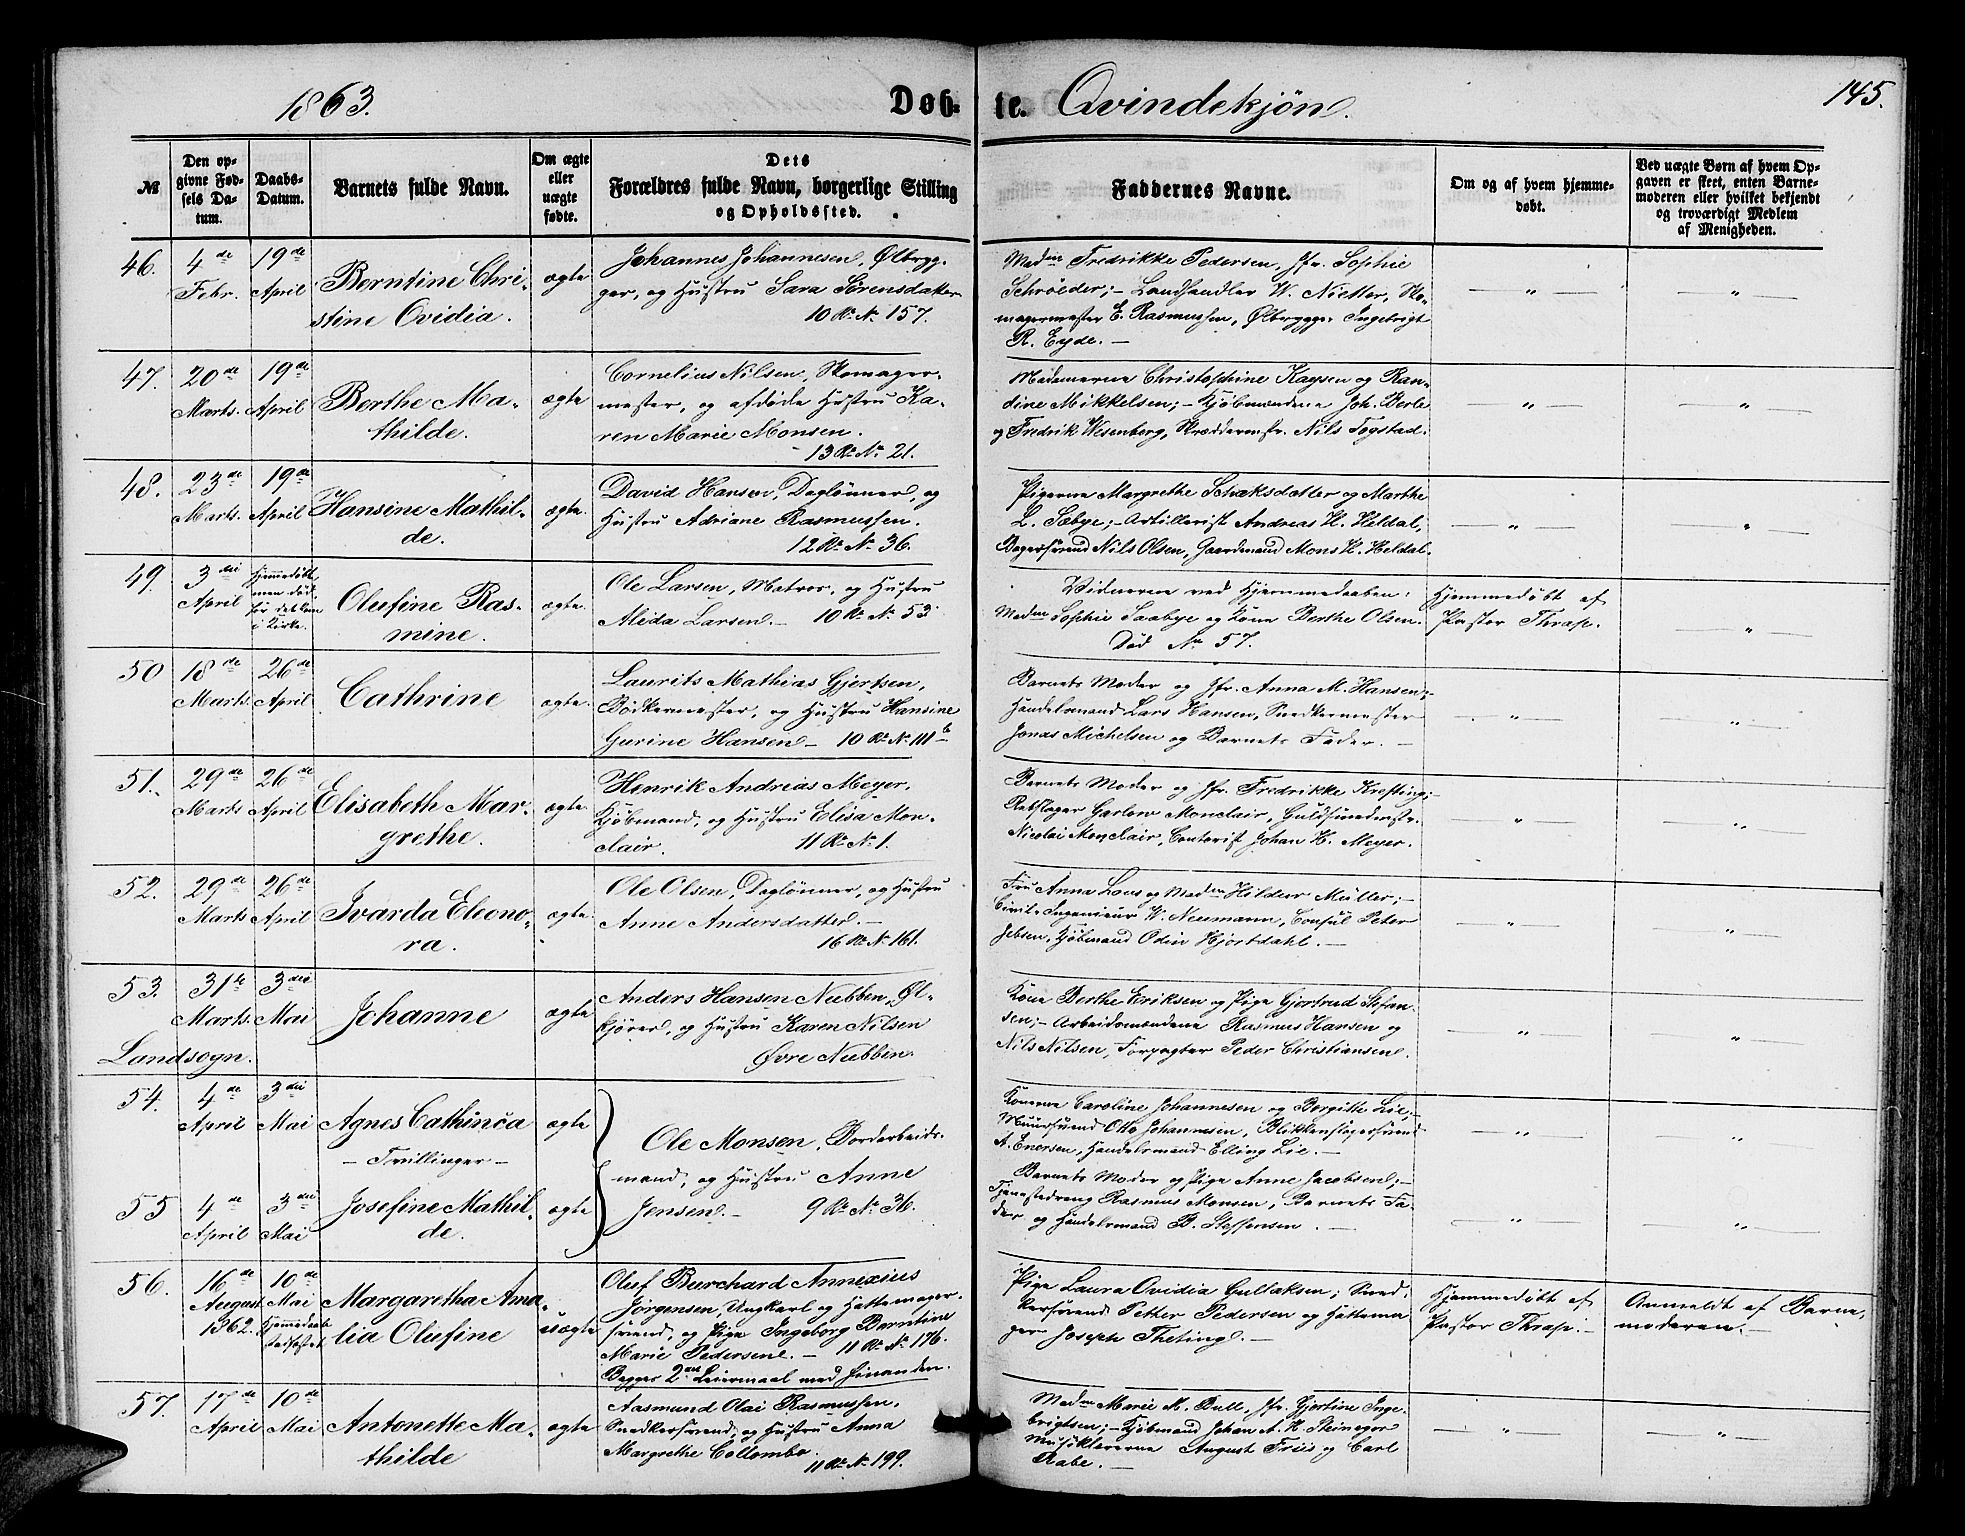 1863. Døb- te. Qvindekjøn. 145.
No Den opgivne Fødsels Datum. Daabs-Datum. Barnets fulde Navn. Om ægte eller uægte fødte. Dets Forældres fulde Navn, borgerlige Stilling og Opholdssted. Faddernes Navne. Om og af hvem hjemmedøbt. Ved uægte Børn af hvem Opgaven er skeet, enten Barnemoderen eller hvilket bekjendt og troværdigt Medlem af Menigheden.
46. 4de Febr. 19de April Berntine Chri-
stine Ovidia. ægte
Johannes Johannesen, Ølbryg-
ger, og Hustru Sara Sørensdatter
10 R. No 157.
Madm Fredrikke Pedersen, Jfr. Sophie
Schrøider; - Landhandler W. Nitter, Sko-
magermester E. Rasmussen, Ølbrygger Ingebrigt
R. Eyde. -
" "
47. 20de Marts. 19de April Berthe Ma-
thilde. ægte
Cornelius Nilsen, Skomager-
mester, og afdøde Hustru Ka-
ren Marie Monsen.
13 R. No 21.
Madamerne Christophine Kaysen og Ran-
dine Mikkelsen; - Kjøbmændene Joh. Berle
og Fredrik Wesenberg, Skræddermstr. Nils Togstad.
" "
48. 23de Marts. 19de April Hansine Mathil-
de. ægte.
David Hansen, Daglønner, og
Hustru Adriane Rasmussen.
12 R. No 36.
Pigerne Margrethe Schaksdatter og Marthe
L. Sæbye; - Artillerist Andreas H. Heldal,
Bagersvend Nils Olsen, Gaardmand Mons H. Heldal.
" "
49. 3die April Hjemmedøbt, men død før det kom i Kirke. Olufine Ras-
mine. ægte.
Ole Larsen, Matros, og Hustru
Alida Larsen. - 10 R. No 53.
Vidnerne ved Hjemmedaaben:
Madm Sophie Saabye og Kone Berthe Olsen.
Død No 57.
Hjemmedøbt af
Pastor Thrap.
"
50 18de Marts. 26de April Cathrine ægte.
Laurits Mathias Gjertsen,
Bødkermester, og Hustru Hansine
Gurine Hansen - 10 R. No 111 b
Barnets Moder og Jfr. Anna M. Hansen; -
Handelsmand Lars Hansen, Snedkermester
Jonas Michelsen og Barnets Fader. -
" "
51. 29de Marts 26de April Elisabeth Mar-
grethe. ægte.
Henrik Andreas Meyer,
Kjøbmand, og Hustru Elisa Mon-
clair. 11 R. No 1.
Barnets Moder og Jfr. Fredrikke Krefting; -
Rebslager Monclair, Guldsmedmstr.
Nicolai Monclair, Contorist Johan H. Meyer.
" "
52. 29de Marts 26de April Ivarda Eleono-
ra. ægte.
Ole Olsen, Daglønner, og Hustru
Anne Andersdatter. -
16 R. No 161.
Fru Anna Laus og Madm Hildur Müller; -
Civil-Ingenieur W. Neumann, Consul Peter
Jebsen, Kjøbmand Odin Hjortdahl. -
" "
53. 31te Marts. 3die Mai Johanne ægte
Landsogn.
Anders Hansen Nubben, Øl-
kjører, og Hustru Karen Nilsen
Øvre Nubben.
Kone Berthe Eriksen og Pige Gjertrud Stefan-
sen; - Arbeidsmændene Rasmus Hansen og
Nils Nilsen, Forpagter Peder Christiansen.
" "
54. 4de April 3die Mai Agnes Cathinca ægte
- Tvillinger -
Ole Monsen, Bordarbeids-
mand, og Hustru Anne
Jensen. - 9 R. No 36.
Konerne Caroline Johannesen og Bergitte Lie; -
Muursvend Otto Johannesen, Blikkenslagersvend
A. Enersen, Handelsmand Elling Lie. -
" "
55 4de April 3die Mai Josefine Mathil-
de. ægte
Barnets Moder og Pige Anne Jacobsen; -
Tjenestedreng Rasmus Monsen, Barnets Fa-
der og Handelsmand B. Steffensen. -
" "
56. 16de August 1862. 10de Mai Hjemmedaab stadfæstet Margaretha Ama-
lia Olufine uægte
Oluf Burchard Annexius
Jørgensen, Ungkarl og Hattemager-
svend, og Pige Ingeborg Berntine
Marie Pedersen. - 11 R. No 176.
Begges 2det Leiermaal med hinanden.
Pige Laura Ovidia Gullaksen; Sned-
kersvend Petter Pedersen og Hattema
ger Joseph Theting. -
Hjemmedøbt af
Pastor Thrap. -
Anmeldt af Barne-
moderen. -
57. 17de April 10de Mai Antonette Ma-
thilde ægte
Aasmund Olai Rasmussen,
Snedkersvend, og Hustru Anna
Margrethe Collombo.
11 R. No 199.
Madm Marie K. Bull, Jfr. Gjertine Inge-
brigtsen; - Kjøbmand Johan A. H. Steinegger
Musiklærerne August Friis og Carl
Rabe. -
" "